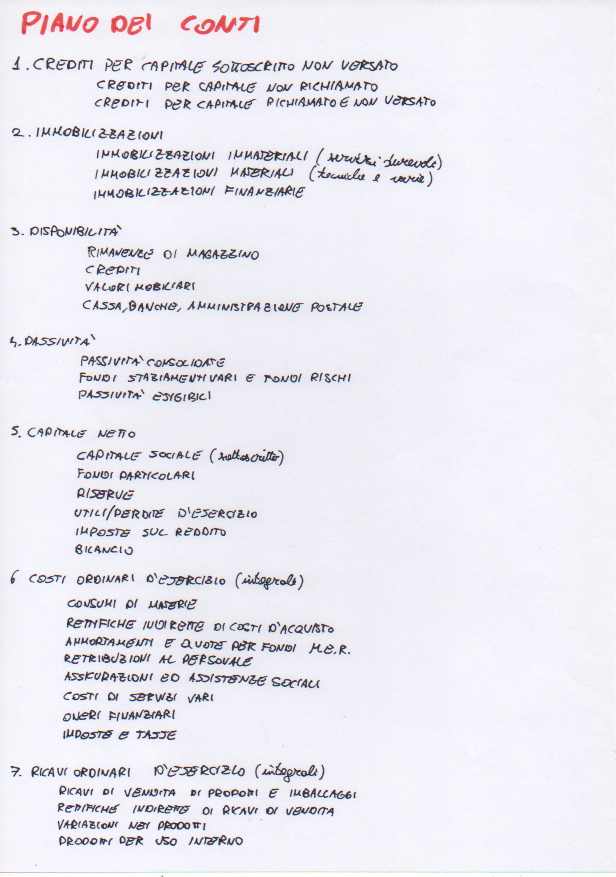 PIANO DEI CONTI
1. CREDITI PER CAPITALE SOTTOSCRITTO NON VERSATO
CREDITI PER CAPITALE NON RICHIAMATO
CREDITI PER CAPITALE RICHIAMATO E NON VERSATO
2. IMMOBILIZZAZIONI
IMMOBILIZZAZIONI IMMATERIALI (servizi durevoli)
IMMOBILIZZAZIONI MATERIALI (tecniche e varie)
IMMOBILIZZAZIONI FINANZIARIE
3. DISPONIBILITÀ
RIMANENZE DI MAGAZZINO
CREDITI
VALORI MOBILIARI
CASSA, BANCHE, AMMINISTRAZIONE POSTALE
4. PASSIVITÀ
PASSIVITÀ CONSOLIDATE
FONDI STAZIAMENTI VARI E FONDI RISCHI
PASSIVITÀ ESIGIBILI
5. CAPITALE NETTO
CAPITALE SOCIALE (sottoscritto)
FONDI PARTICOLARI
RISERVE
UTILI/PERDITE D'ESERCIZIO
IMPOSTE SUL REDDITO
BILANCIO
6 COSTI ORDINARI D'ESERCIZIO (integrale)
CONSUMI DI MATERIE
RETTIFICHE INDIRETTE DI COSTI D'ACQUISTO
AMMORTAMENTI E QUOTE PER FONDI M.E.R.
RETRIBUZIONI AL PERSONALE
ASSICURAZIONI ED ASSISTENZE SOCIALI
COSTI DI SERVIZI VARI
ONERI FINANZIARI
IMPOSTE E TASSE
7. RICAVI ORDINARI D'ESERCIZIO (integrale)
RICAVI DI VENDITA DI PRODOTTI E IMBALLAGGI
RETTIFICHE INDIRETTE DI RICAVI DI VENDITA
VARIAZIONI NEI PRODOTTI
PRODOTTI PER USO INTERNO